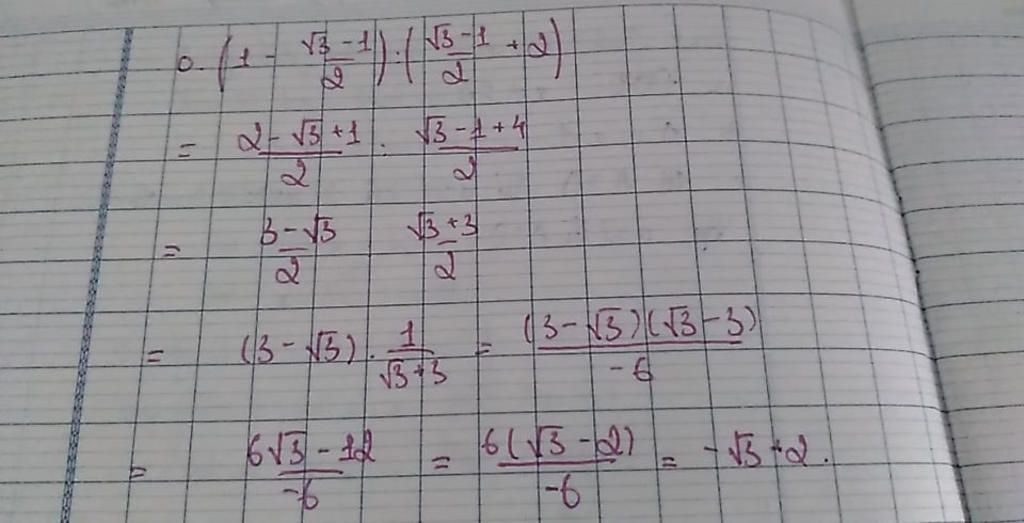 o. (1 - (√3 - 1)/2) : ((√3 - 1)/2 + 2)
= (2 - √3 + 1)/2 : (√3 - 1 + 4)/2
= (3 - √3)/2 (√3 + 3)/2
= (3 - √3) . 1/(√3 + 3) = ((3 - √3)(√3 - 3))/(-6)
= (6√3 - 12)/(-6) = (6(√3 - 2))/(-6) = -√3 + 2.